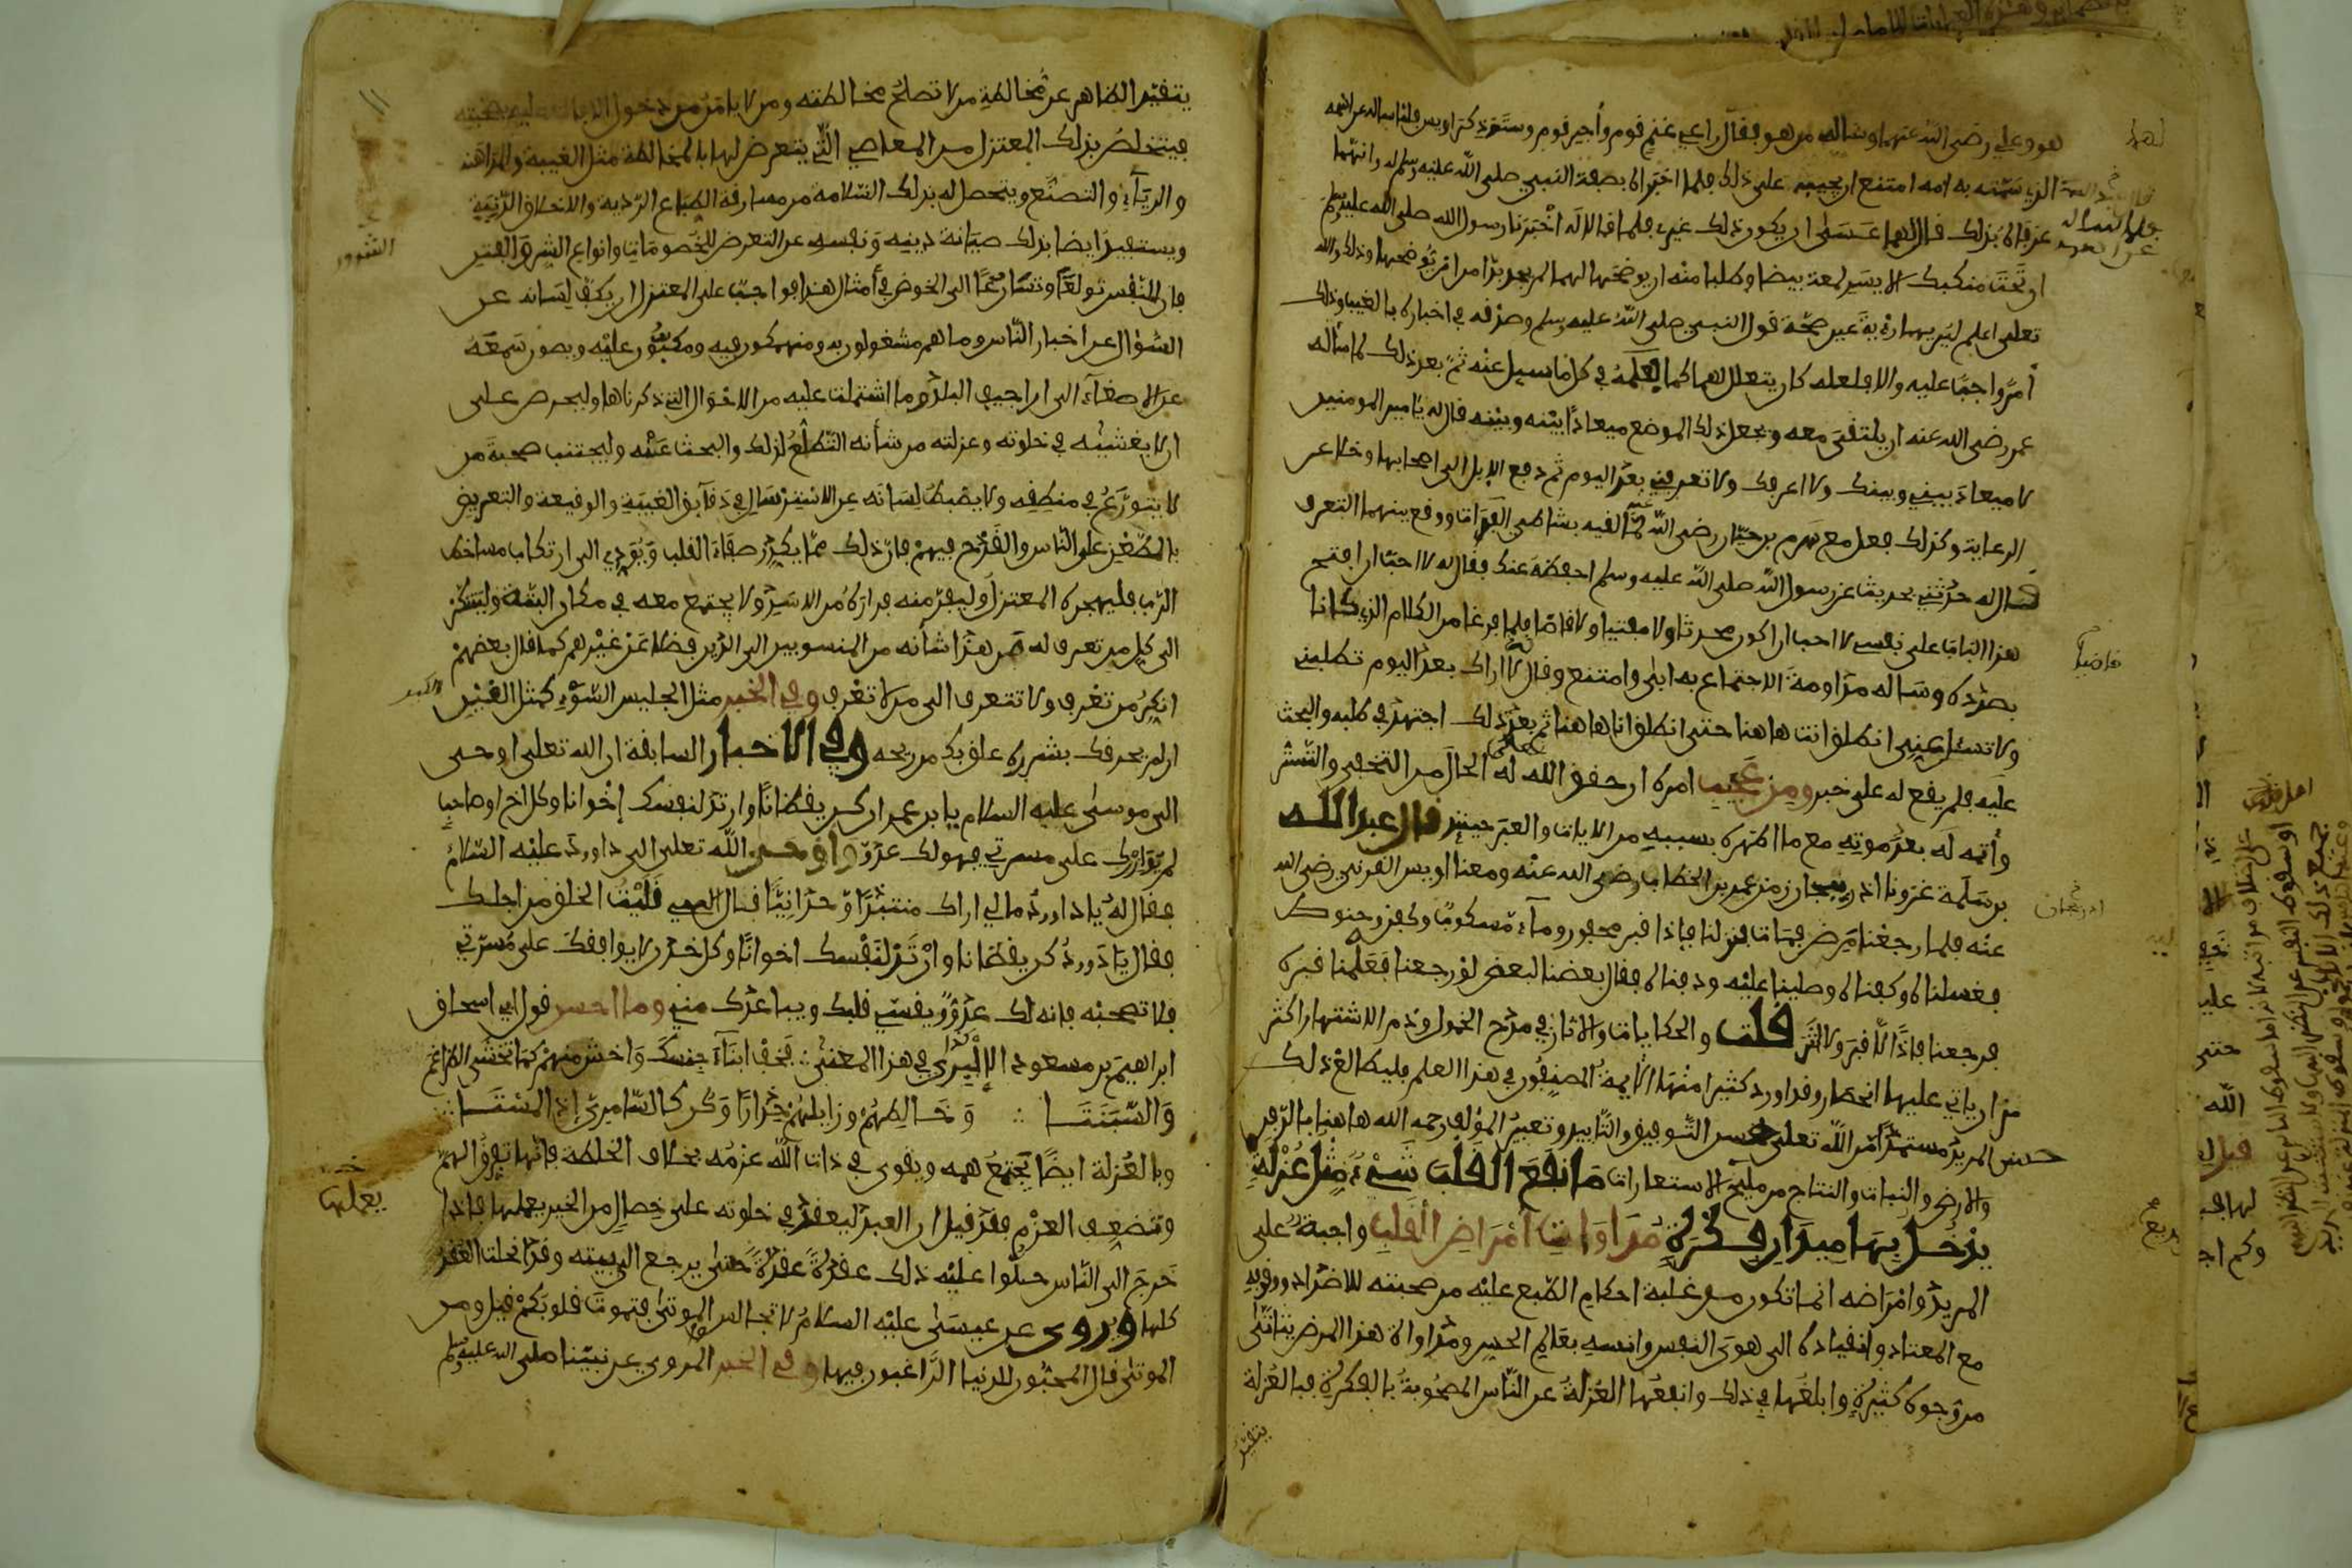 هو وعلي رضى الله عنهما وسألاه من هو فقال راعي غنم قوم وأجير قوم وسترذكر اويس قالا نسألك عن اسمه
الذي سمته به امه امتنع ان يجيبهما على ذلك فلما اخبراه بصفة النبي صلى الله عليه وسلم له وانهما
عرفاه بذلك قال لهما عسى ان يكون ذلك غيري فلما قالا له أخبرنا رسول الله صلى الله عليه وسلم
ان تحت منكبك الايسر لمعة بيضا وطلبا منه ان يوضحها لهما لم يجد بدا من ان يوضحها وذلك والله
تعلى اعلم ليريهما رؤية عين صحة قول النبي صلى الله عليه وسلم وصدقه في اخباره بالغيب وذلك
أمر واجب عليه والا فلعله كان يتعلل لهما كما فعله في كل ما سيل عنه ثم بعد ذلك لما سأله
عمر رضى الله عنه ان يلتقي معه ويجعل ذلك الموضع ميعادا بينه وبينه قال له يا امير المومنين
لا ميعاد بيني وبينك ولا اعرفك ولا تعرفني بعد اليوم ثم دفع الابل الى اصحابها وخلا عن
الرعاية وكذلك فعل مع هرم بن حيان رضى الله عنه لما لقيه بشاطى الفرات ووقع بينهما التعرف
قال له حدثني بحديث عن رسول الله صلى الله عليه وسلم احفظه عنك فقال له لا احب ان افتح
هذا الباب على نفسي لا احب ان اكون محدثا ولا مفتيا ولا قاصا فلما فرغا من الكلام الذي كانا
بصدده وسأله مداومة الاجتماع به ابى وامتنع وقال لا اراك بعد اليوم تطلبني
ولا تسئل عني انطلق انت هاهنا حتى انطلق انا هاهنا ثم بعد ذلك اجتهد في طلبه والبحث
عليه فلم يقع له على خبر ومن عجيب امره ان حقق الله له تعلى الحال من التخفي والتستر
وأتمه له بعد موته مع ما اظهره بسببه من الايات والعبر حينئذ قال عبد الله
بن سلمة غزونا اذربيجان زمن عمر بن الخطاب رضى الله عنه ومعنا اويس القرني رضى الله
عنه فلما رجعنا مرض فمات فنزلنا فاذا قبر محفور وماء مسكوب وكفن وحنوط
فغسلناه وكفناه وصلينا عليه ودفناه فقال بعضنا لبعض لو رجعنا فعلمنا قبره
فرجعنا فاذا لا قبر ولا اثر قلت والحكايات والاثار في مدح الخمول وذم الاشتهار اكثر
من ان ياتي عليها انحصار وقد اورد كثيرا منها الايمة المصنفون في هذا العلم فليطالع ذلك
المريد مستمدا من الله تعلى حسن التوفيق والتاييد وتعبير المؤلف رحمه الله هاهنا بالدفن
والارض والنبات والنتاج من مليح الاستعارات ما نفع القلب شيء مثل عزلة
يدخل بها ميدان فكرة مداوات أمراض القلب واجبة على
المريد وامراضه انما تكون من غلبة احكام الطبع عليه من صحبته للاضداد ووقوفه
مع المعتاد وانقياده الى هوى النفس وانسه بعالم الحس ومداواة هذا المرض يتاتى
من وجوه كثيرة وابلغها في ذلك وانفعها العزلة عن الناس المصحوبة بالفكرة فبالعزلة
يتقيد
قاضيا
اذربيجان
يتقيد الظاهر عن مخالطة من لا تصلح مخالطته ومن لا يامن من دخول الافات عليه بصحبته
فيتخلص بذلك المعتزل من المعاصي التي يتعرض لها بالمخالطة مثل الغيبة والمداهنة
والرياء والتصنع ويتحصل له بذلك السلامة من مسارقة الطباع الردية والاخلاق الدنية
ويستفيد ايضا بذلك صيانة دينه ونفسه عن التعرض للخصومات وانواع الشرور والفتن
فان للنفس تولعا وتسارعا الى الخوض في أمثال هذا فواجب على المعتزل ان يكف لسانه عن
السؤال عن اخبار الناس وما هم مشغولون به ومنهمكون فيه ومكبون عليه ويصون سمعه
عن الاصغاء الى اراجيف البلد وما اشتملت عليه من الاحوال التي ذكرناها وليحرص على
ان لا يغشيه في خلوته وعزلته من شأنه التطلع لذلك والبحث عنه وليجتنب صحبة من
لا يتورع في منطقه ولا يضبط لسانه عن الاسترسال في دقايق الغيبة والوقيعة والتعريض
بالطعن على الناس والقدح فيهم فان ذلك مما يكدر صفاء القلب ويؤدي الى ارتكاب مساخط
الرب فليهجره المعتزل وليفر منه فراره من الاسد ولا يجتمع معه في مكان البتة وليتنكر
الى كل من تعرف له من هذا شأنه من المنسوبين الى الدين فضلا عن غيرهم كما قال بعضهم
انكر من تعرف ولا تتعرف الى من لا تعرف وفي الخبر مثل الجليس السوء كمثل القين
ان لم يحرقك بشرره علق بك من ريحه وفي الاخبار السابقة ان الله تعلى اوحى
الى موسى عليه السلام يا بن عمران كن يقظانا وارتد لنفسك إخوانا وكل اخ او صاحب
لم يؤازرك على مسرتي فهو لك عدو واوحى الله تعلى الى داوود عليه السلام
فقال له يا داوود ما لي اراك منتبذا وحدانيا فقال الهي قليت الخلق من اجلك
فقال يا داوود كن يقظانا وارتد لنفسك اخوانا وكل خدن لا يوافقك على مسرتي
فلا تصحبه فانه لك عدو ويقسي قلبك ويباعدك مني وما احسن قول ابي اسحاق
ابراهيم بن مسعود الإلبيري في هذا المعنى ∴ فخف ابناء جنسك واخش منهم كما تخشى الضراغم
والسبنتا ∴ وخالطهم وزايلهم حذارا وكن كالسامري إذا لمستا ∴
وبالعزلة ايضا يجتمع همه ويقوى في ذات الله عزمه بخلاف الخلطة فانها تفرق الهم
وتضعف العزم فقد قيل ان العبد ليعقد في خلوته على خصال من الخير يعملها فاذا
خرج الى الناس حلوا عليه ذلك عقدة عقدة حتى يرجع الى بيته وقد انحلت العقد
كلها وروى عن عيسى عليه السلام لا تجالس الموتى فتموت قلوبكم قيل ومن
الموتى قال المحبون للدنيا الراغبون فيها وفي الخبر المروي عن نبينا صلى الله عليه وسلم
الشرور
الكير
يعملها